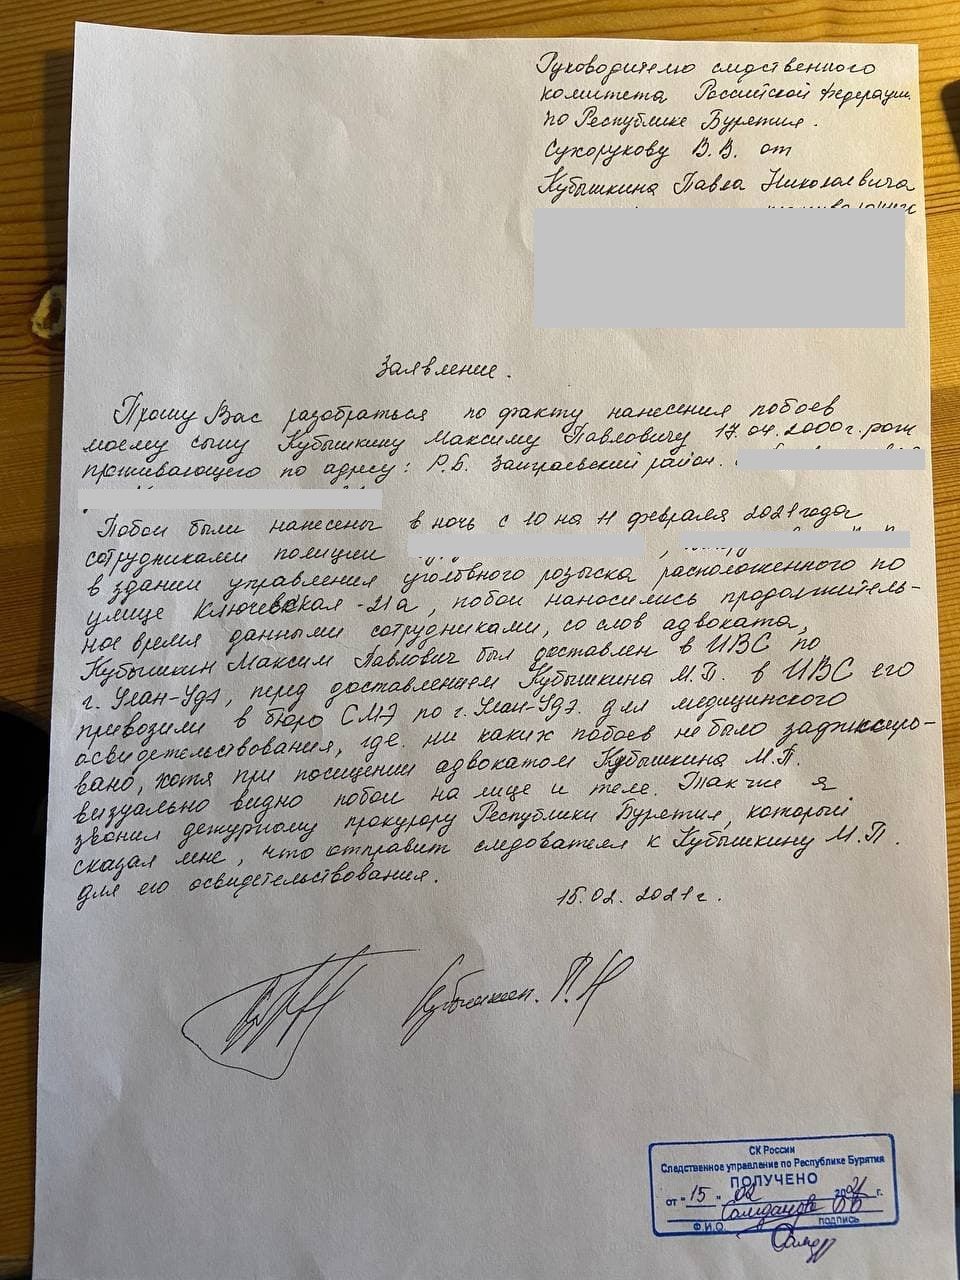 Руководителю следственного
комитета Российской Федерации
по Республике Бурятия.
Сухорукову В.В. от
Кубышкина Павла Николаевича
Заявление.
Прошу Вас разобраться по факту нанесения побоев
моему сыну Кубышкину Максиму Павловичу 17.04.2000г. рож
проживающего по адресу: Р.Б. Заиграевский район.
Побои были нанесены в ночь с 10 на 11 февраля 2021 года
сотрудниками полиции , 
в здании управления уголовного розыска расположенного по
улице Ключевская -21а, побои наносились продолжитель-
ное время данными сотрудниками, со слов адвоката,
Кубышкин Максим Павлович был доставлен в ИВС по
г. Улан-Удэ, перед доставлением Кубышкина М.П. в ИВС его
привозили в бюро СМЭ по г. Улан-Удэ для медицинского
освидетельствования, где ни каких побоев не было зафиксиро-
вано, хотя при посищении адвокатом Кубышкина М.П.
визуально видно побои на лице и теле. Так же я
звонил дежурному прокурору Республики Бурятия, который
сказал мне, что отправит следователя к Кубышкину М.П.
для его освидетельствования.
15.02.2021г.
Кубышкин. П.Н
СК России
Следственное управление по Республике Бурятия
ПОЛУЧЕНО
от "15" 02 2021 г.
Ф.И.О. подпись